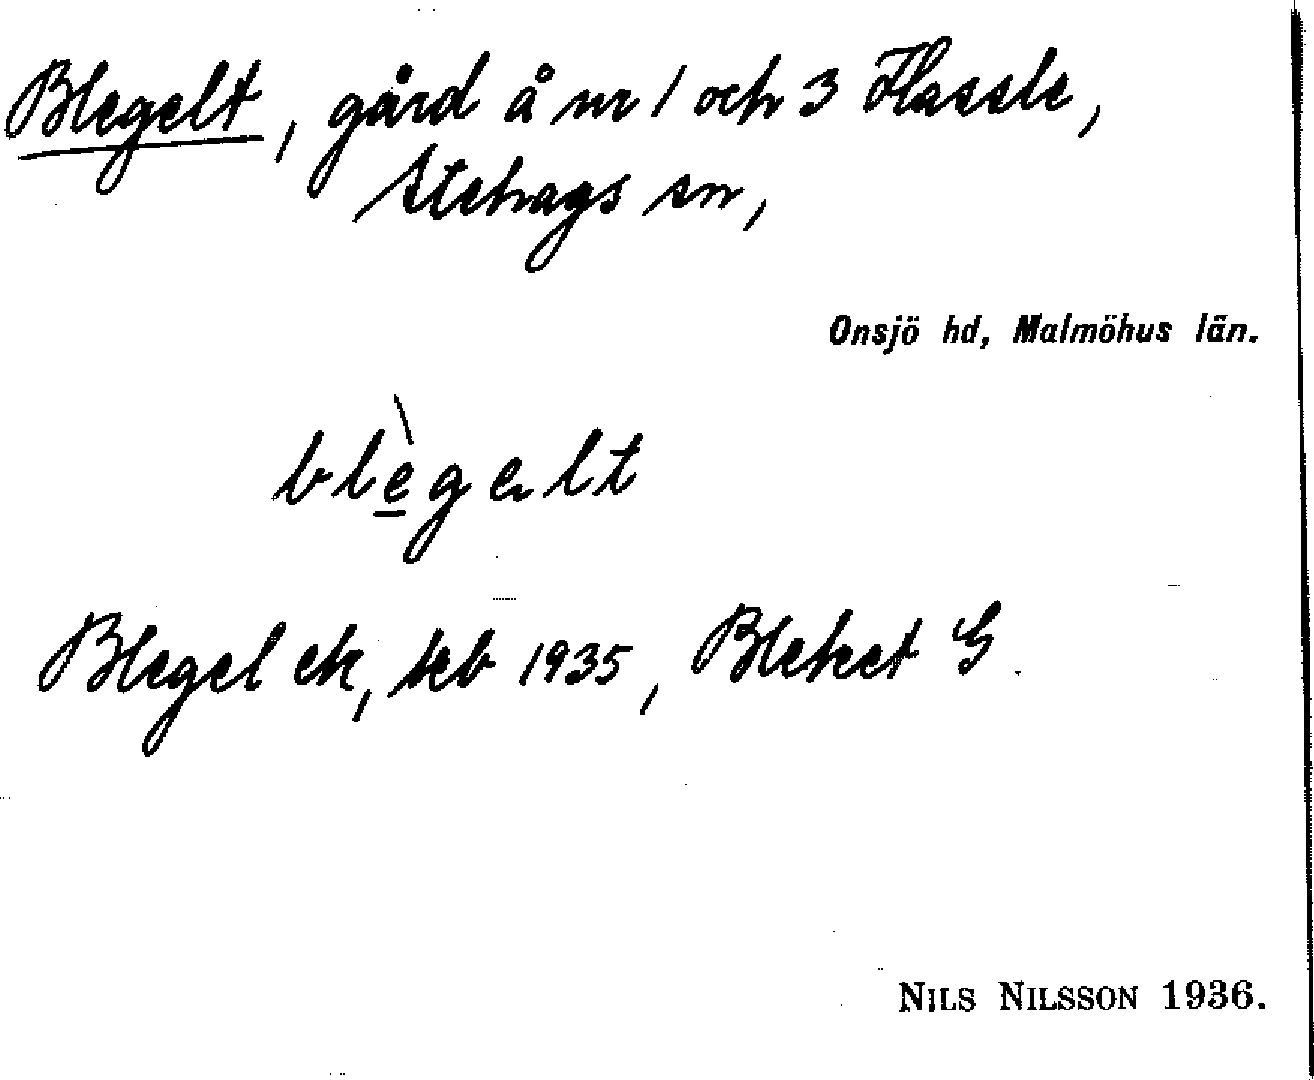 Blegelt, gård å nr 1 och 3 Hassle,
Stehags sn,
Onsjö hd, Malmöhus län.
blègelt
Blegel ek, jeb 1935, Bleket G.
NILS NILSSON 1936.